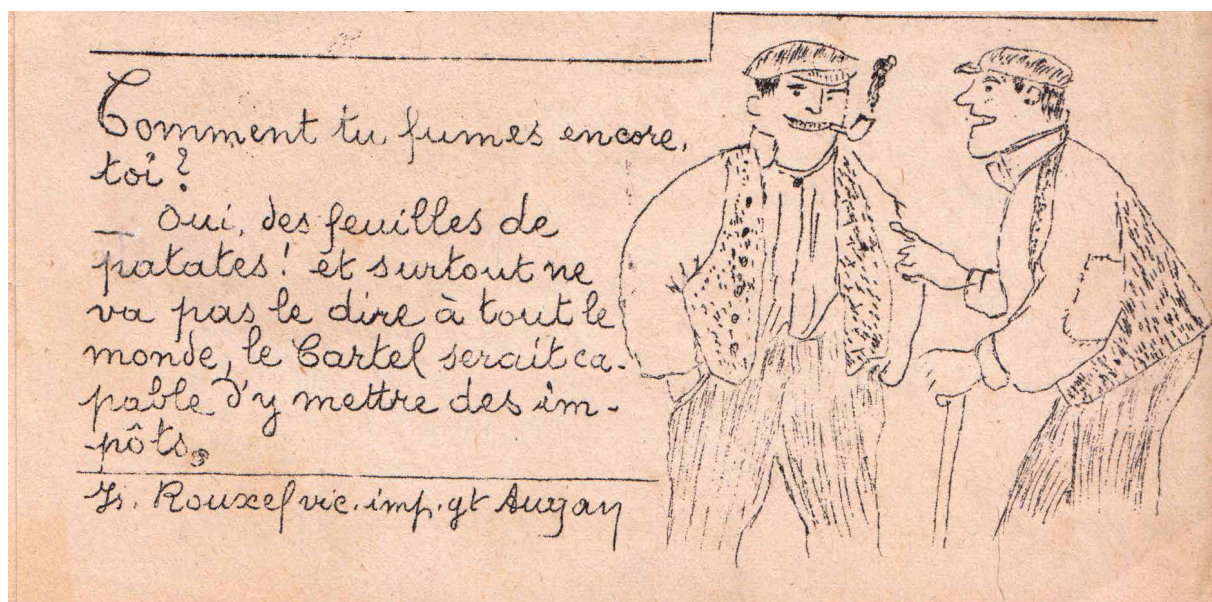 Comment tu fumes encore,
toi?
_ Oui, des feuilles de
patates! et surtout ne
va pas le dire à tout le
monde, le Cartel serait ca-
pable d'y mettre des im-
-pôts.
Is. Rouxel vic. imp. gt Augan